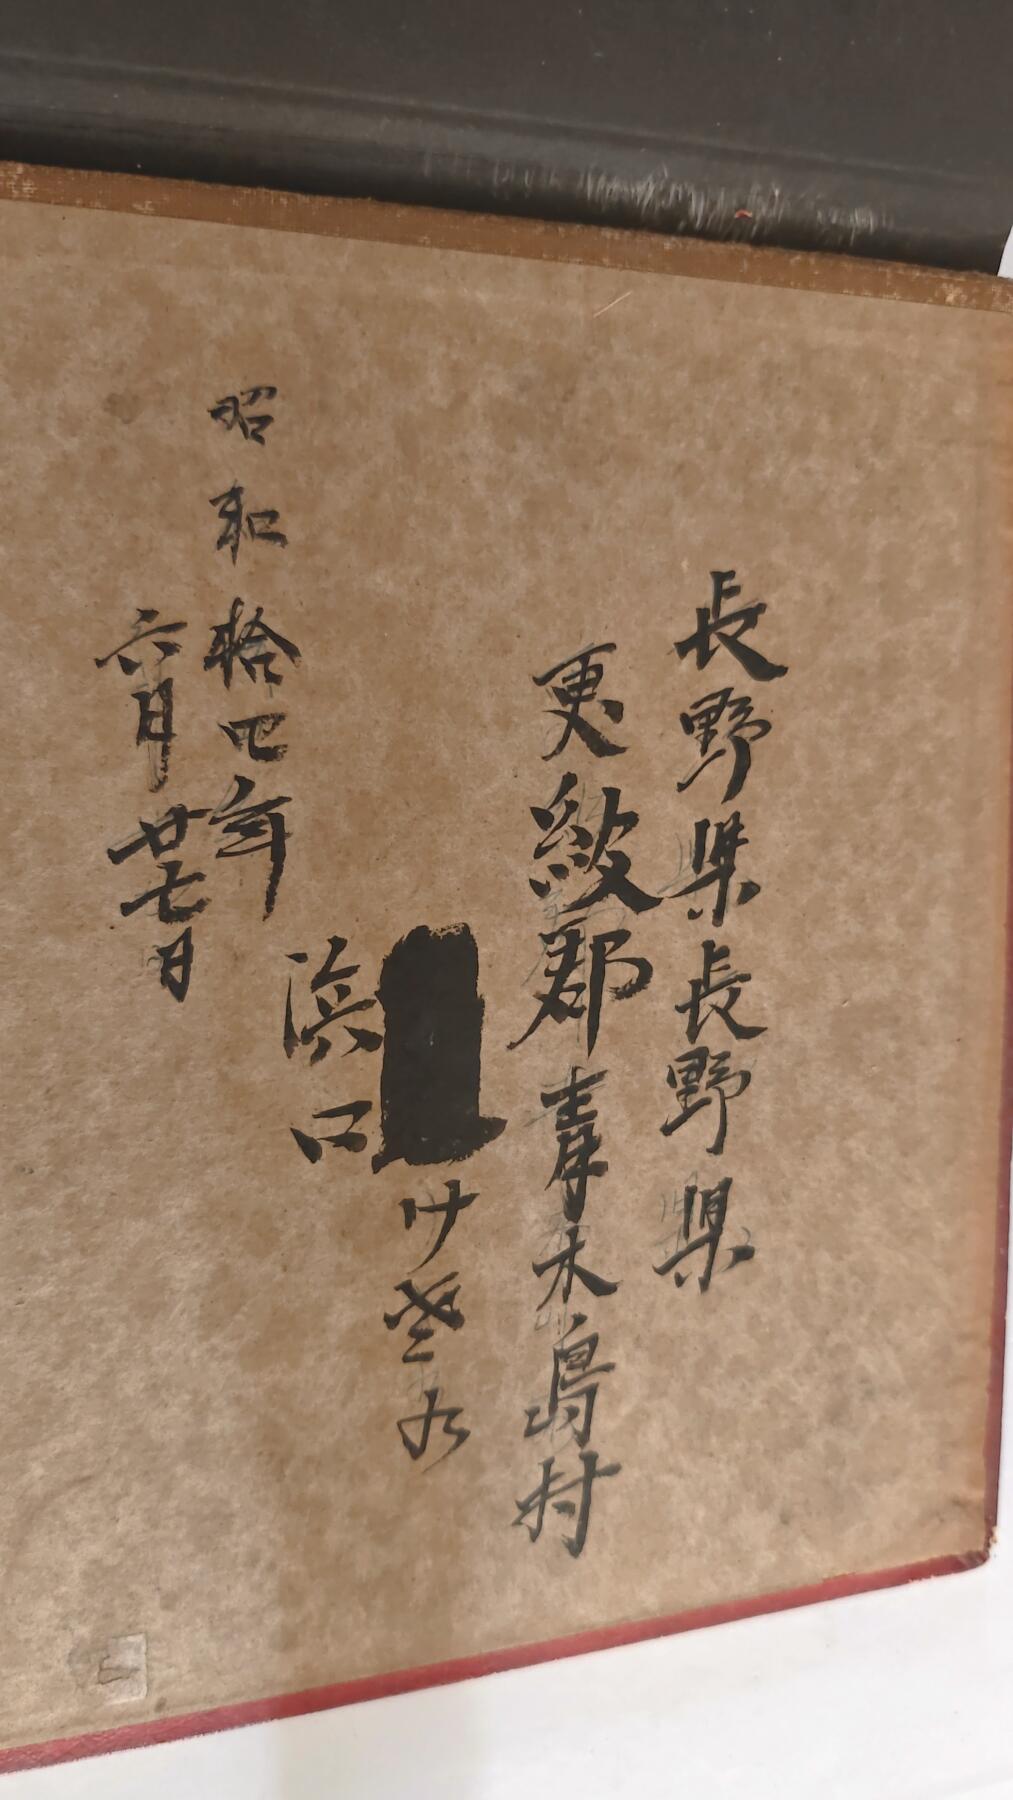 長野県長野県
更級郡青木島村
浜口
昭和拾四年
六月廿七日